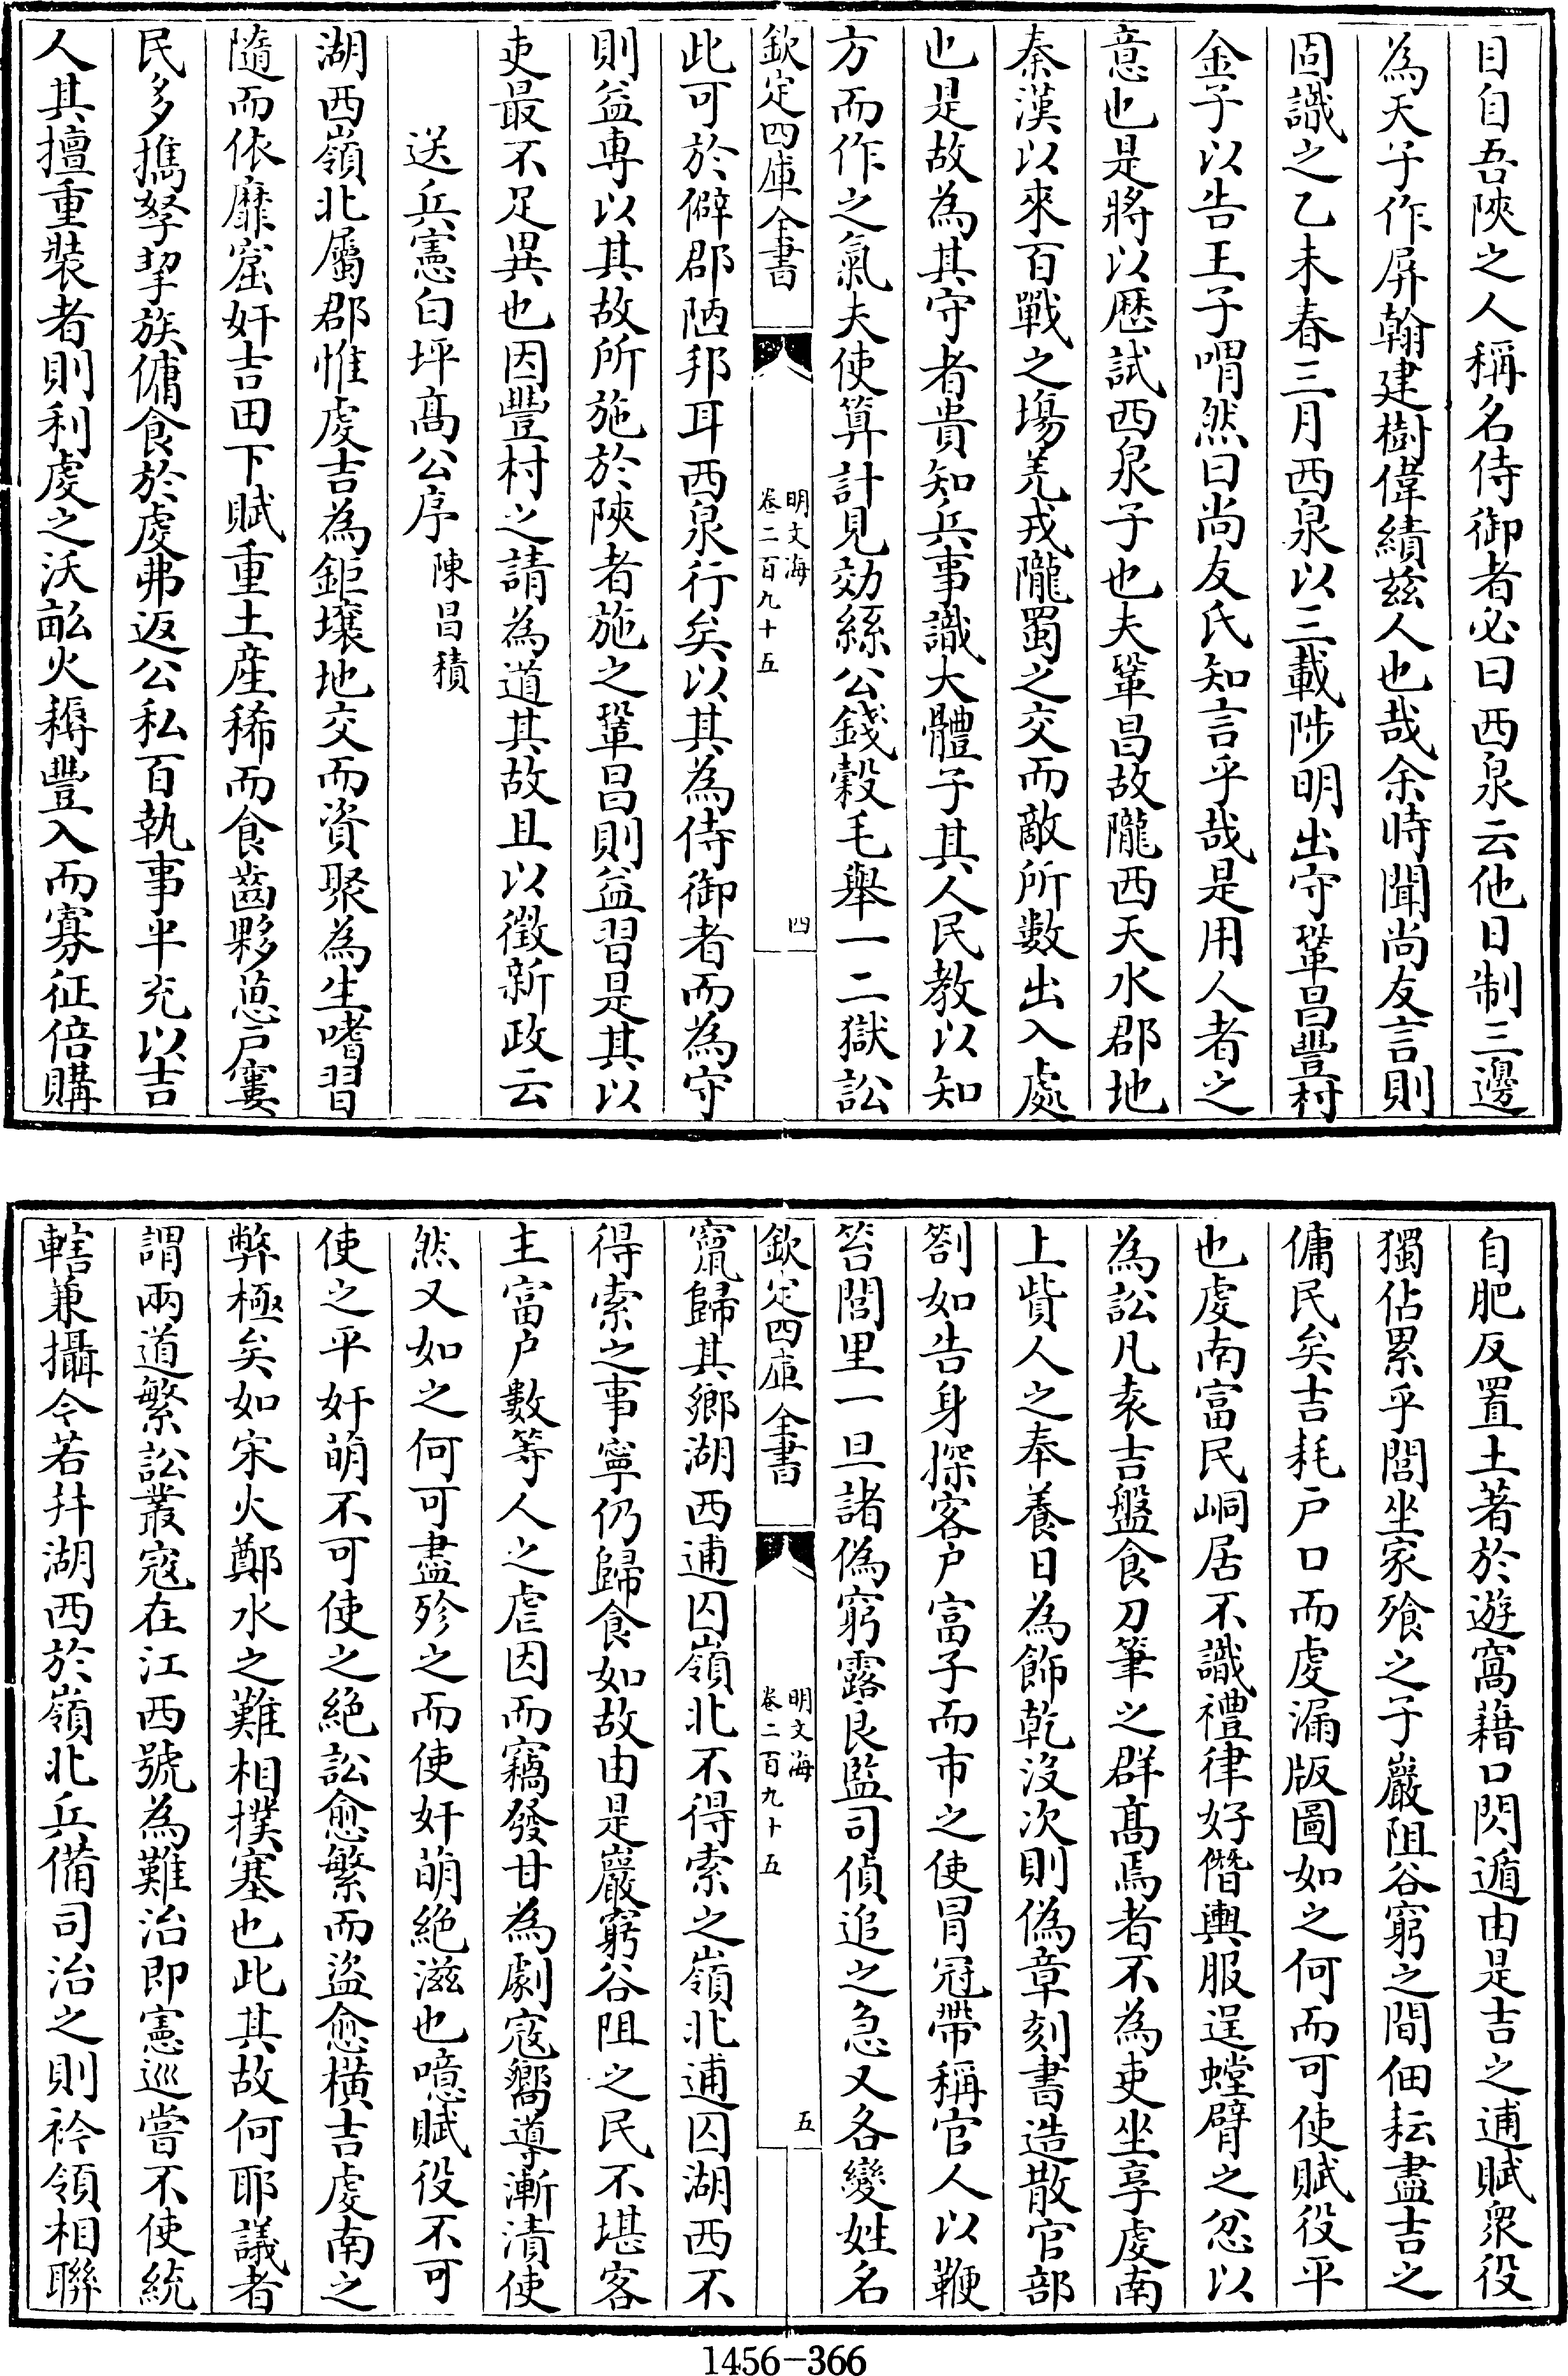 目自吾陜之人稱名侍御者必曰西泉云他日制三邊
為天子作屏翰建樹偉績兹人也哉余時聞尚友言則
固識之乙未春三月西泉以三載陟明出守鞏昌豐村
金子以告王子喟然曰尚友氏知言乎哉是用人者之
意也是將以歴試西泉子也夫鞏昌故隴西天水郡地
秦漢以來百戰之塲羌戎隴蜀之交而敵所數出入處
也是故為其守者貴知兵事識大體子其人民教以知
方而作之氣夫使算計見効絲公錢穀毛舉一二獄訟
欽定四庫全書
明文海
卷二百九十五
四
此可於僻郡陋邦耳西泉行矣以其為侍御者而為守
則益専以其故所施於陜者施之鞏昌則益習是其以
吏最不足異也因豐村之請為道其故且以徵新政云
送兵憲白坪髙公序
陳昌積
湖西嶺北屬郡惟虔吉為鉅壤地交而資聚為生嗜習
隨而依靡窟奸吉田下賦重土産稀而食齒夥蒠戸窶
民多㩦孥挈族傭食於虔弗返公私百執事半充以吉
人其擅重裝者則利虔之沃畝火耨豐入而寡征倍購
自肥反置土著於遊窩藉口閃遁由是吉之逋賦衆役
獨佔累乎閭坐家飱之子巖阻谷窮之間佃耘盡吉之
傭民矣吉耗戸口而虔漏版圖如之何而可使賦役平
也虔南富民峒居不識禮律好僭輿服逞螳臂之忿以
為訟凡袁吉盤食刀筆之群髙焉者不為吏坐享虔南
上貲人之奉養日為飾乾沒次則偽章刻書造散官部
劄如告身探客戸富子而市之使冒冠帶稱官人以鞭
笞閭里一旦諸偽窮露良監司偵追之急又各變姓名
欽定四庫全書
明文海
卷二百九十五
五
竄歸其鄉湖西逋囚嶺北不得索之嶺北逋囚湖西不
得索之事寧仍歸食如故由是巖窮谷阻之民不堪客
主富戸數等人之虐因而竊發甘為劇寇嚮導漸漬使
然又如之何可盡殄之而使奸萌絕滋也噫賦役不可
使之平奸萌不可使之絶訟愈繁而盜愈橫吉虔南之
弊極矣如宋火鄭水之難相撲塞也此其故何耶議者
謂兩道繁訟叢寇在江西號為難治即憲巡嘗不使統
轄兼攝令若幷湖西於嶺北兵備司治之則衿領相聯
1456-366